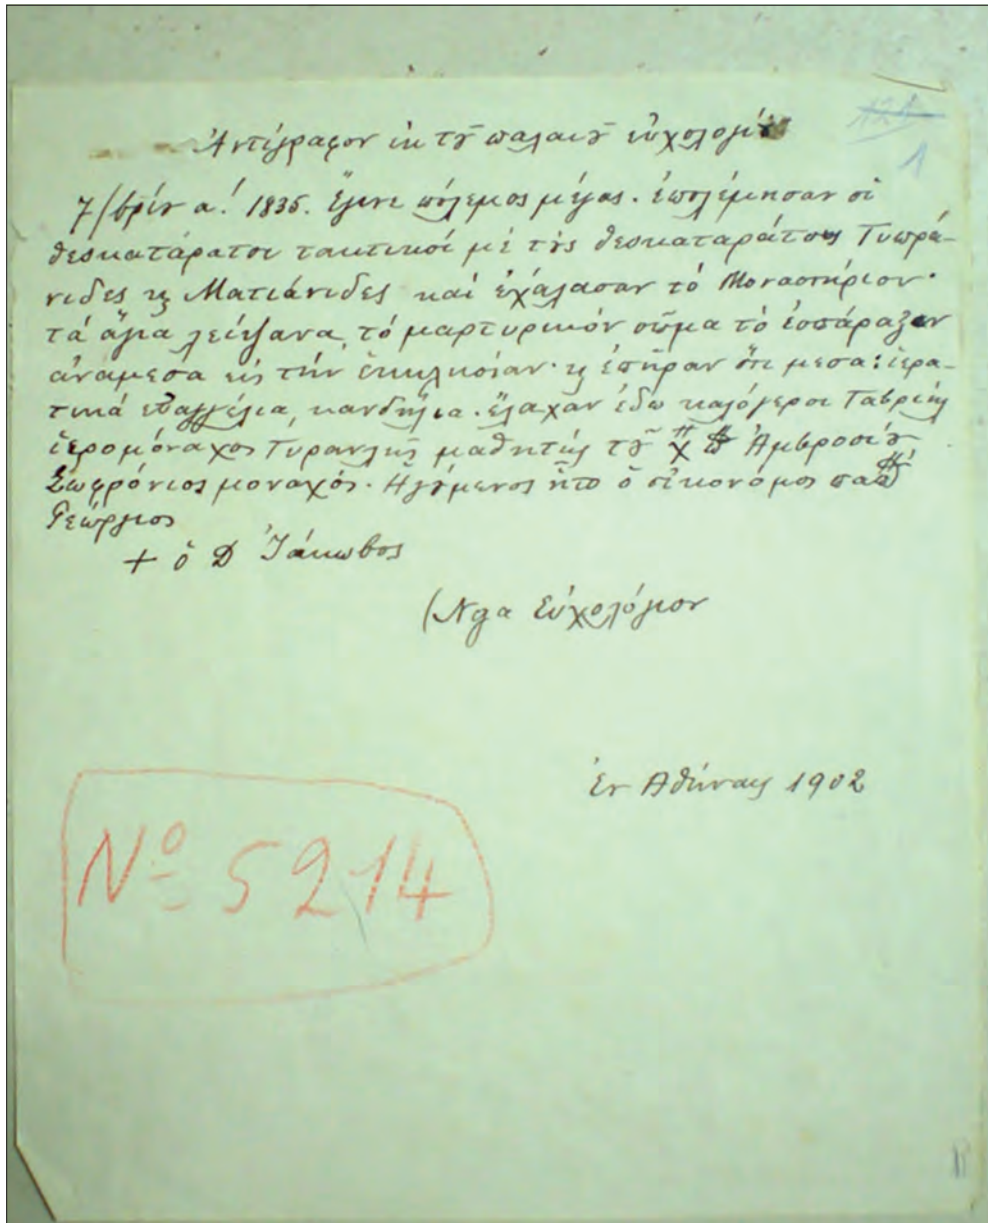 Ἀντίγραφον ἐκ τοῦ παλαιοῦ εὐχολογίου
121
1
7/βρίῳ α! 1835. Ἔγινε πόλεμος μέγας. ἐπολέμησαν οἱ
θεοκατάρατοι τακτικοί μέ τούς θεοκαταράτους Τυπρά-
νιδες κ Ματιάνιδες καί ἐχάλασαν τό Μοναστήριον.
τά ἅγια λείψανα, τό μαρτυρικόν σῶμα τό ἐσπάραξαν
ἀνάμεσα εἰς τήν ἐκκλησίαν. κ ἐπῆραν ὅτι μεσα: ἱερα-
τικά εὐαγγέλια, κανδήλια. ἔλαχαν ἐδῶ καλόγεροι Γαβριήλ
ἱερομόναχος Τυρανλῆς μαθητής τοῦ χ Ἀμβροσίου
Σωφρόνιος μοναχός. Ἡγούμενος ἦτο ὁ οἰκονόμος παπᾶ
Γεώργιος
+ ὁ Δ Ἰάκωβος
Εὐχολόγιον
Ἐν Ἀθήναις 1902
Nº 5214